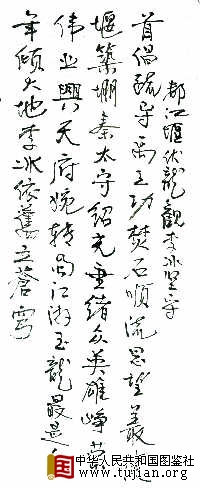 都江堰伏龙观李冰坚守
首倡疏导禹王功焚石顺流思望丛
堰筑堋秦太守绍光垂绪众英雄峥
伟业兴天府婉转蜀江游玉龙最是
年倾大地李冰依旧立苍穹
中华人民共和国图鉴社
www.tujian.org